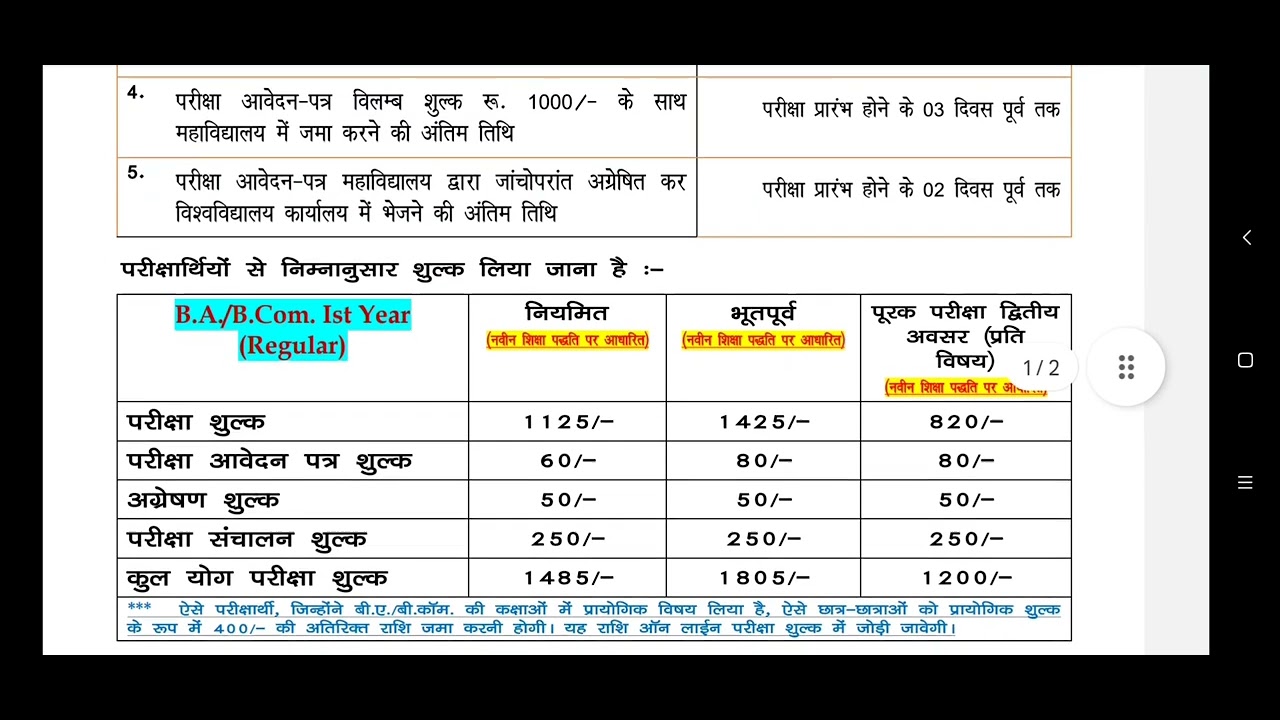 4. परीक्षा आवेदन-पत्र विलम्ब शुल्क रू. 1000/- के साथ
महाविद्यालय में जमा करने की अंतिम तिथि
परीक्षा प्रारंभ होने के 03 दिवस पूर्व तक
5. परीक्षा आवेदन-पत्र महाविद्यालय द्वारा जांचोपरांत अग्रेषित कर
विश्वविद्यालय कार्यालय में भेजने की अंतिम तिथि
परीक्षा प्रारंभ होने के 02 दिवस पूर्व तक
परीक्षार्थियों से निम्नानुसार शुल्क लिया जाना है :–
B.A./B.Com. Ist Year
(Regular)
नियमित
(नवीन शिक्षा पद्धति पर आधारित)
भूतपूर्व
(नवीन शिक्षा पद्धति पर आधारित)
पूरक परीक्षा द्वितीय
अवसर (प्रति
विषय)
(नवीन शिक्षा पद्धति पर
1 / 2
परीक्षा शुल्क 1125/– 1425/– 820/–
परीक्षा आवेदन पत्र शुल्क 60/– 80/– 80/–
अग्रेषण शुल्क 50/– 50/– 50/–
परीक्षा संचालन शुल्क 250/– 250/– 250/–
कुल योग परीक्षा शुल्क 1485/– 1805/– 1200/–
*** ऐसे परीक्षार्थी, जिन्होंने बी.ए./बी.कॉम. की कक्षाओं में प्रायोगिक विषय लिया है, ऐसे छात्र–छात्राओं को प्रायोगिक शुल्क
के रूप में 400/– की अतिरिक्त राशि जमा करनी होगी। यह राशि ऑन लाईन परीक्षा शुल्क में जोड़ी जावेगी।